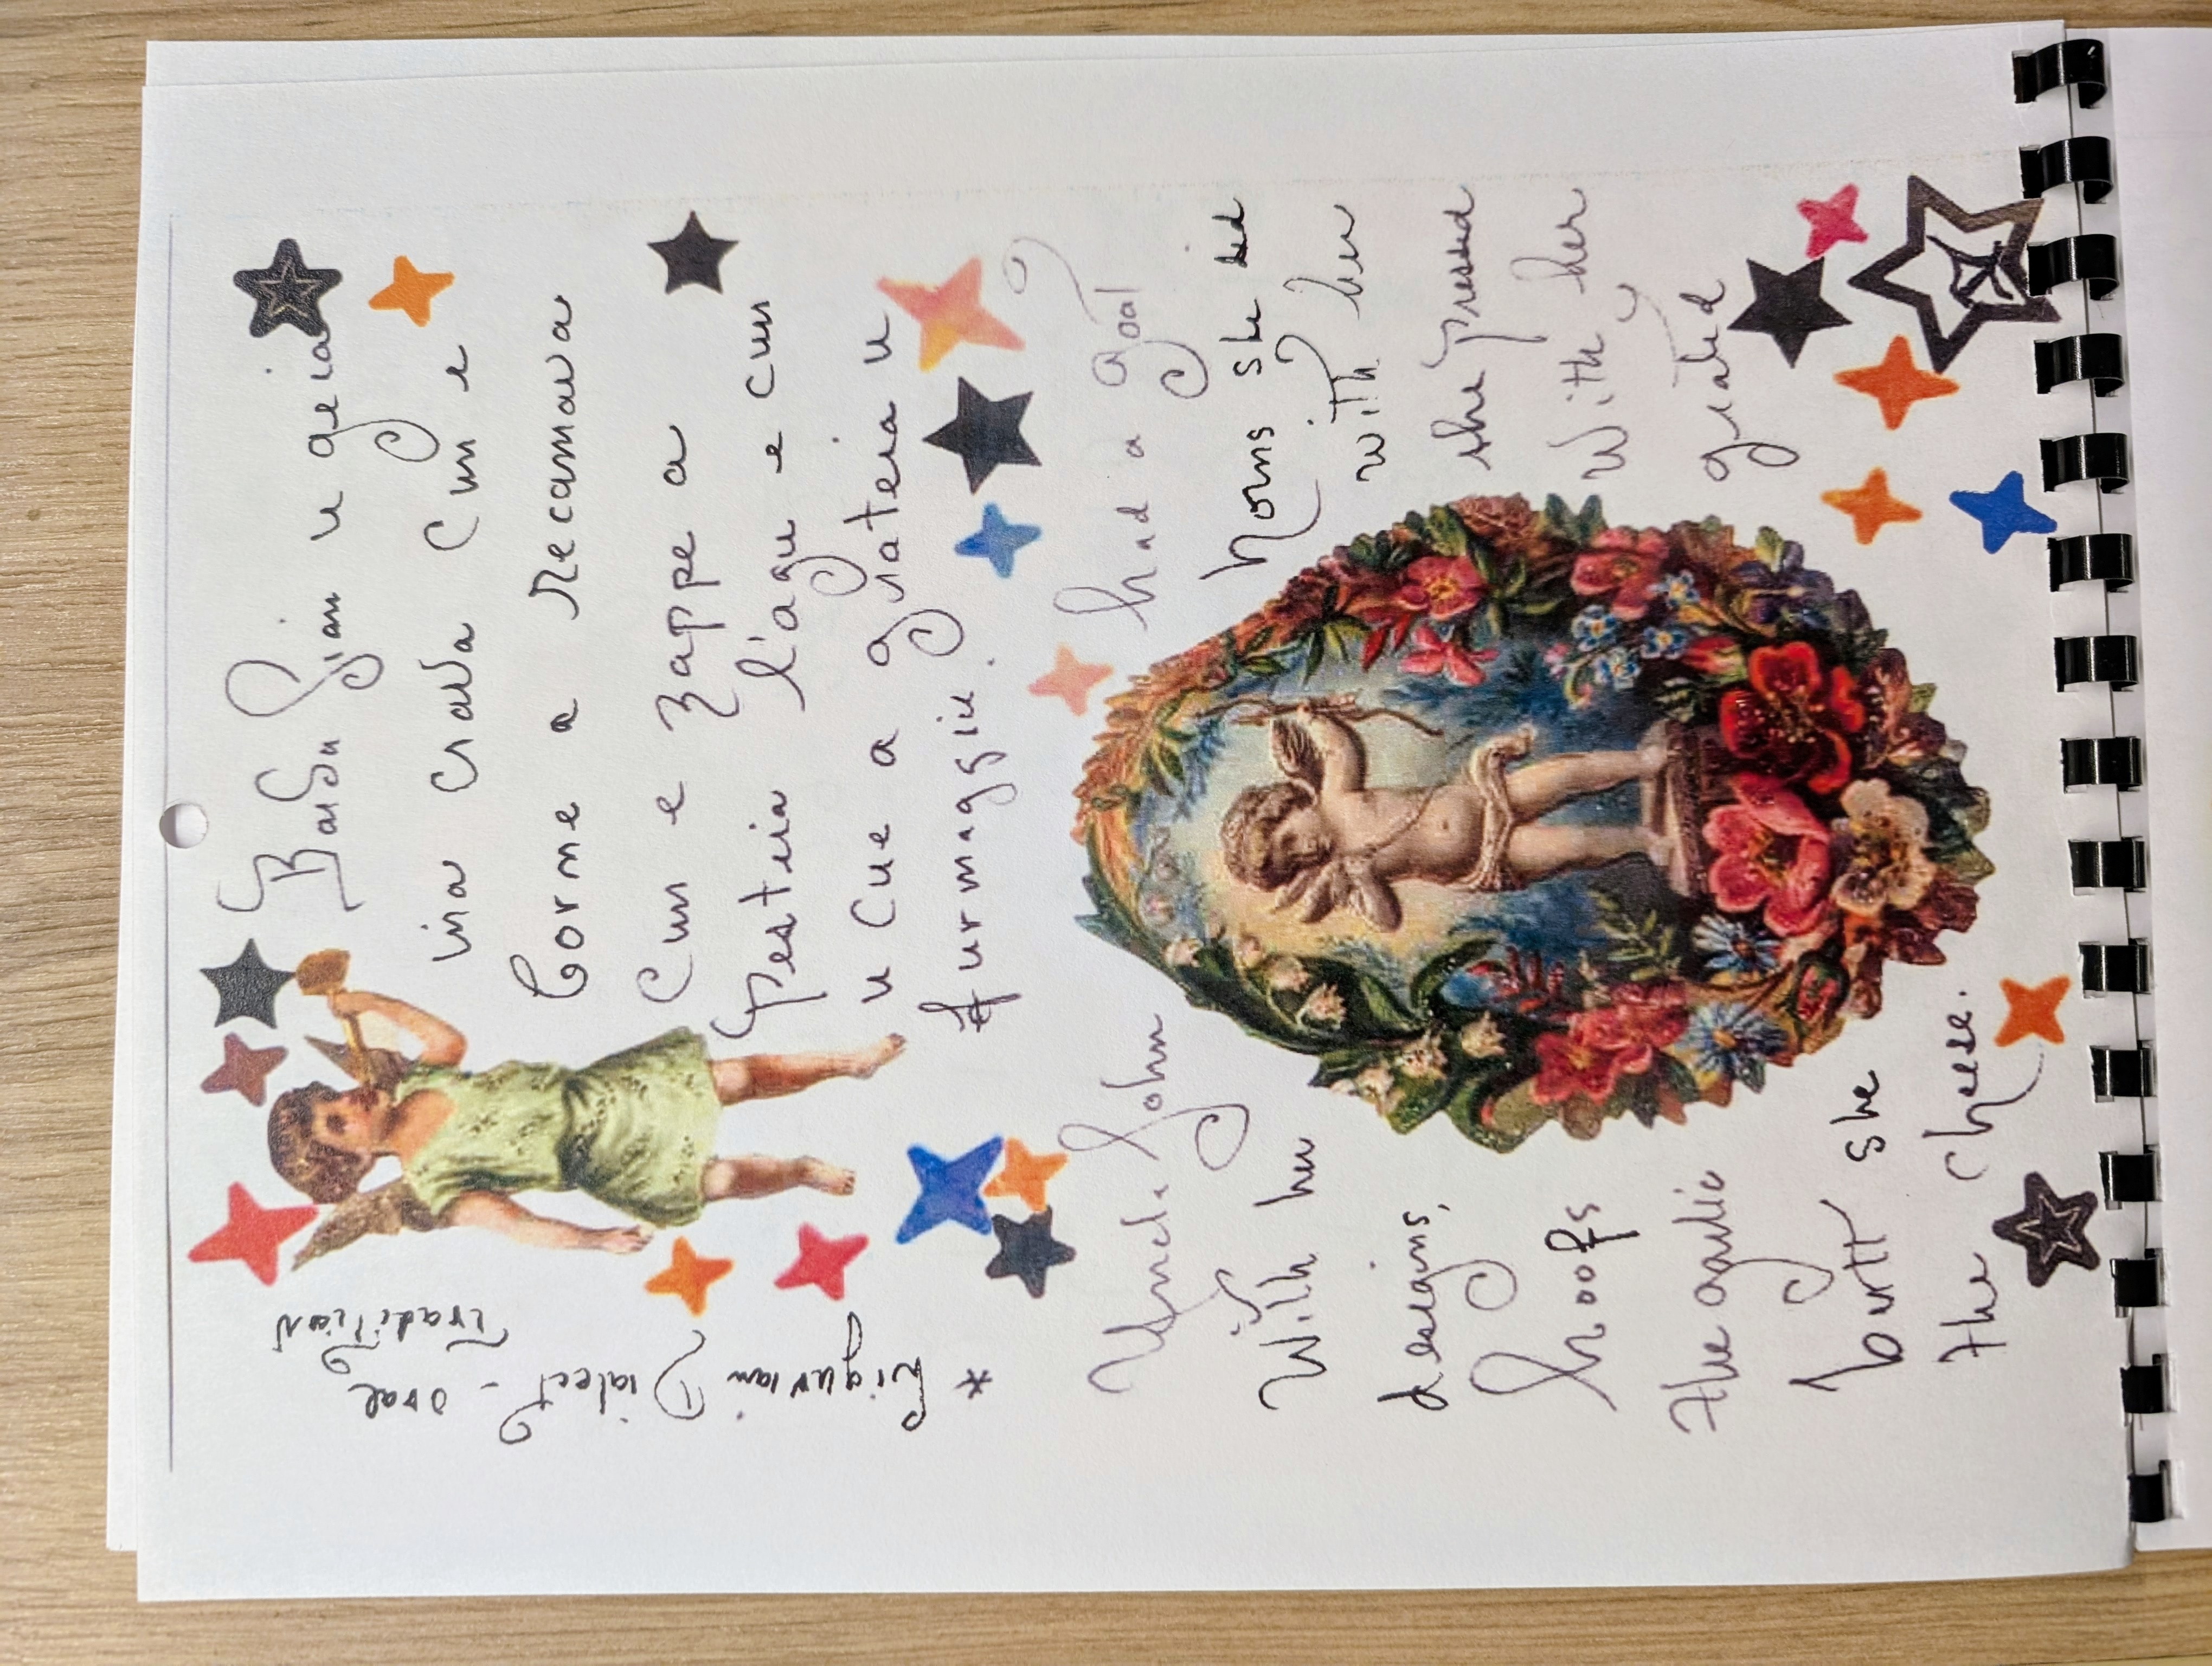 Barba Gian u geiva
ina crava Cun e
Corne a recamava
Cun e zappe a
pestia l'agu e cun
u cue a grateia u
furmaggiu.
* Ligurian
Dialect - oral
Tradition
Uncle John had a goat
With her horns she did
designs, with her
hoofs she pressed
the garlic With her
butt she grated
the cheese.